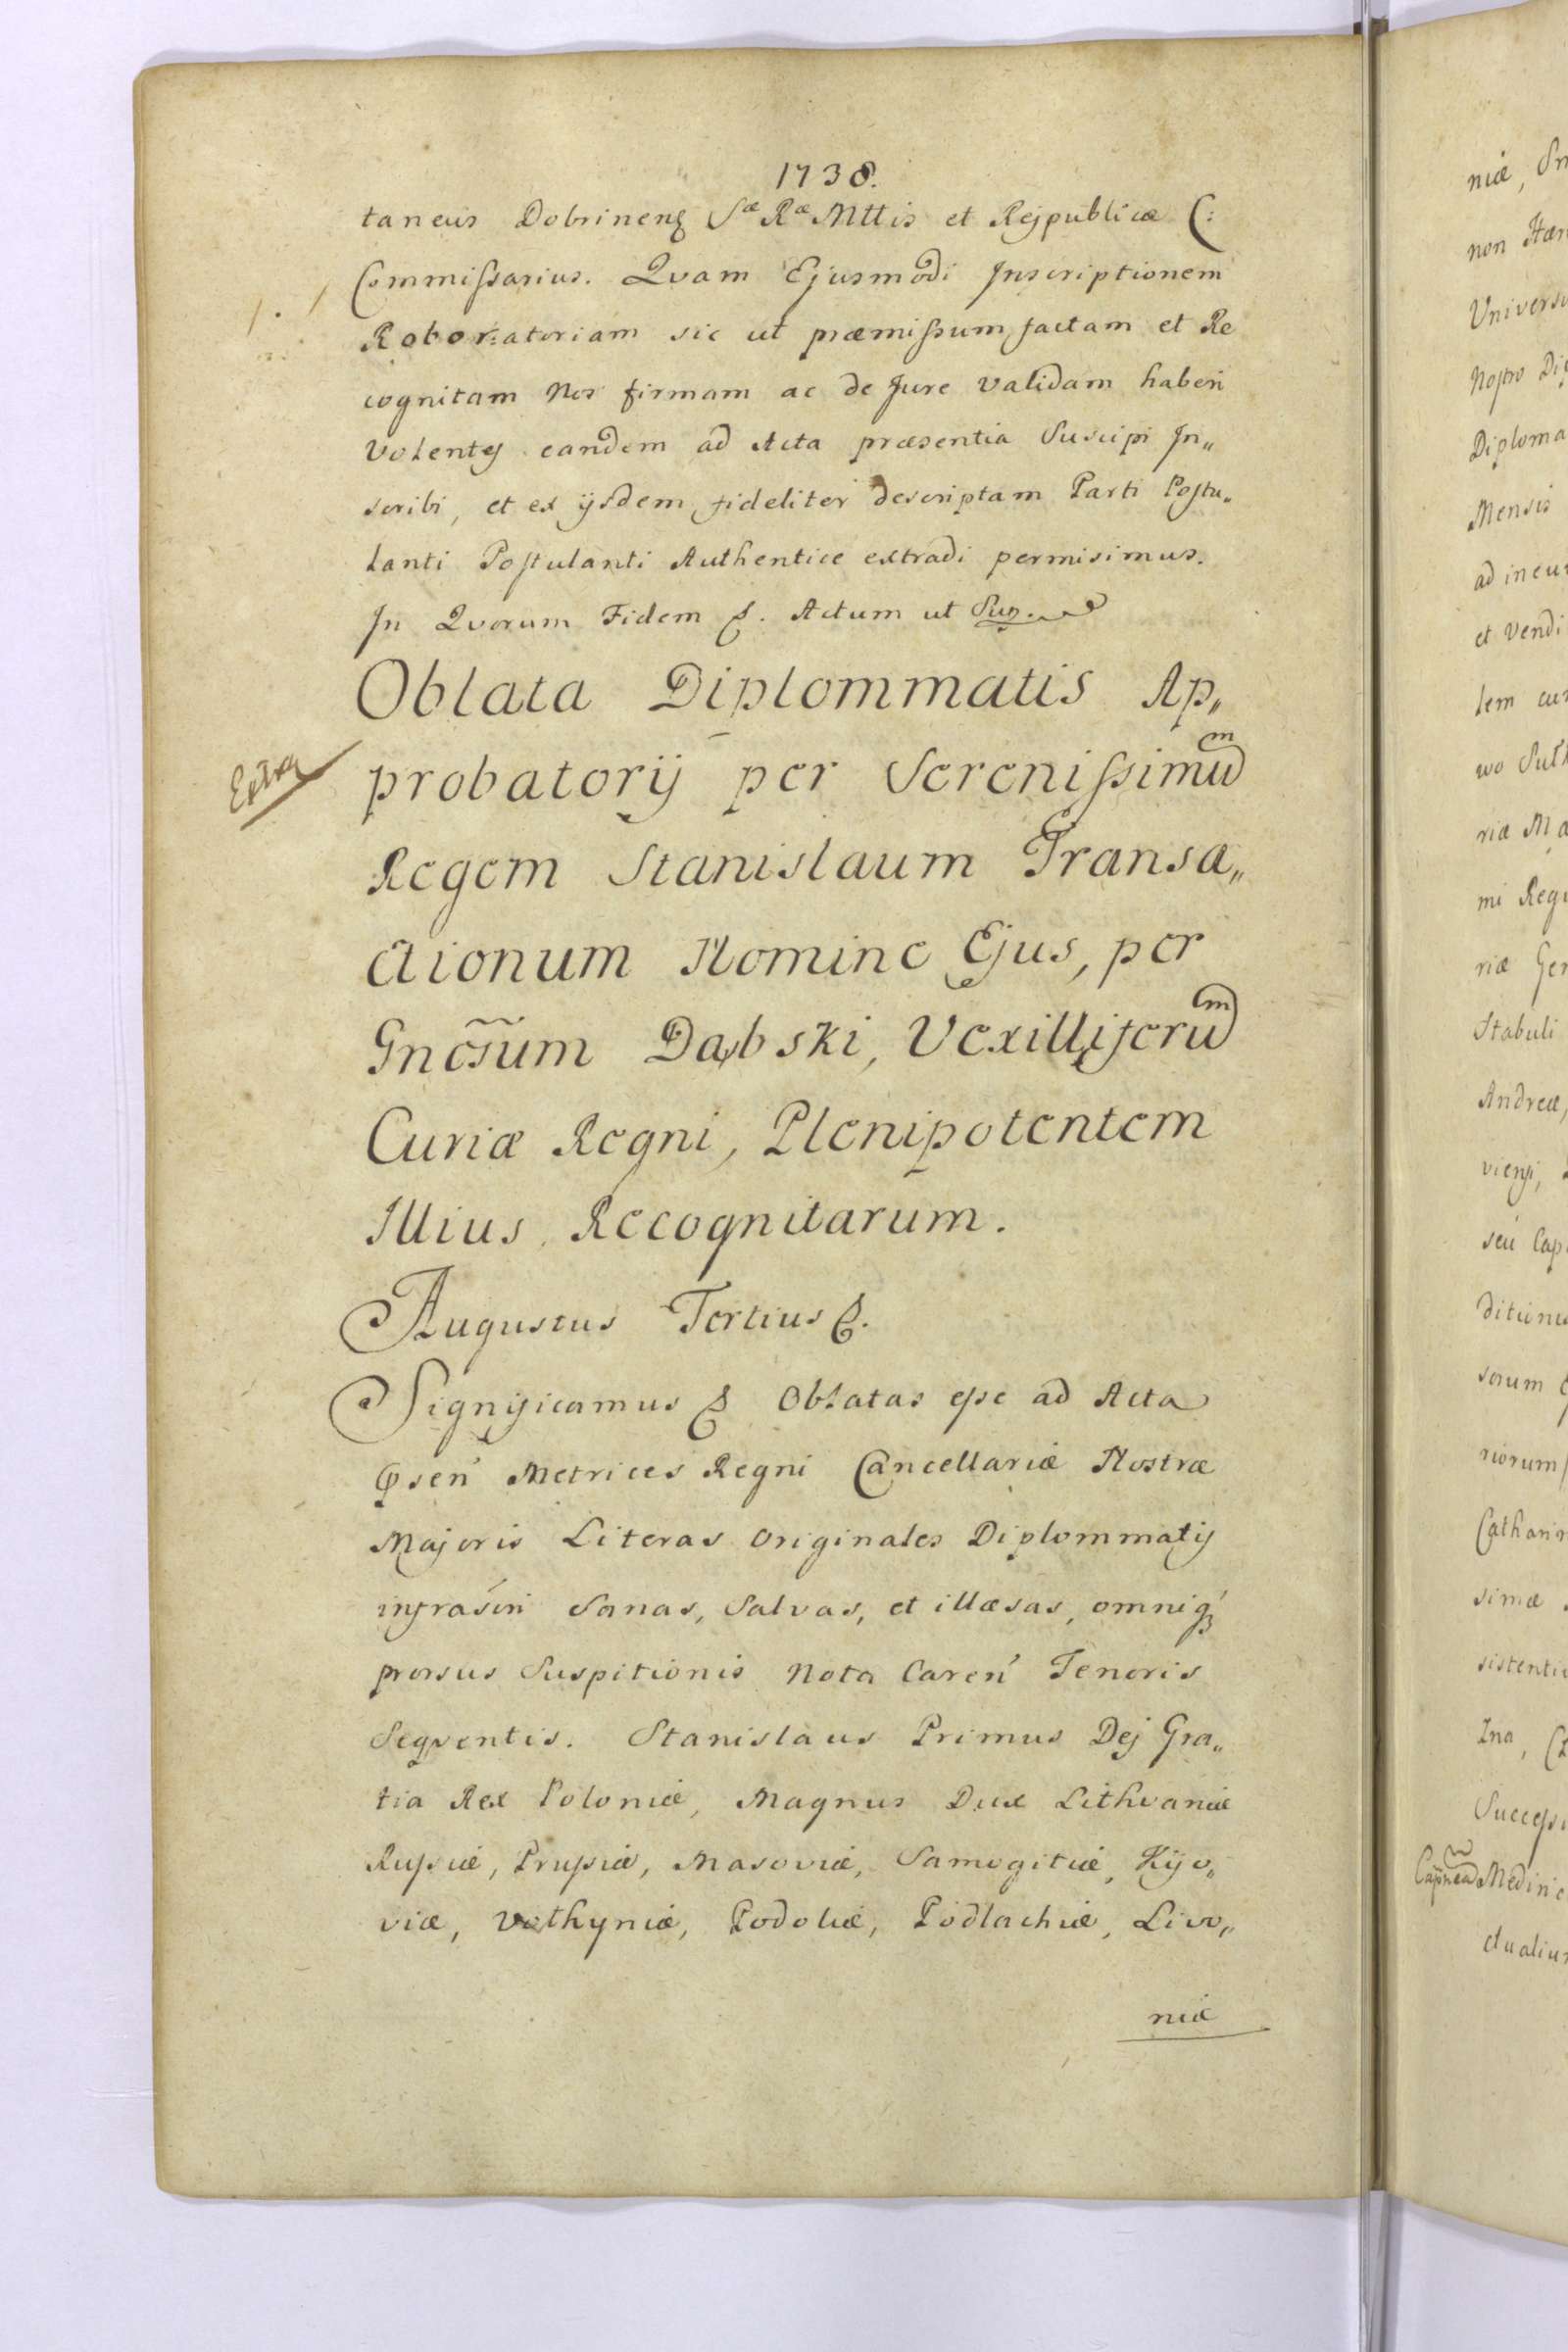 1738.
taneus Dobrinens Sæ Ræ Mttis et Rejpublicæ C:
Commissarius. Qvam Ejusmodi Inscriptionem
Roboratoriam sic ut præmissum factam et Re
cognitam Nos firmam ac de Jure validam haberi
Volentes eandem ad Acta præsentia Suscipi In„
scribi, et ex ijsdem fideliter descriptam Parti Postu„
lanti Postulanti Authentice extradi permisimus.
In Qvorum Fidem &. Actum ut Sup.
Oblata Diplommatis Ap„
probatorij per Serenissimum
Extra
Regem Stanislaum Transa„
ctionum Nomine Ejus, per
Gnosum Dąbski, Vexilliferum
Curiæ Regni, Plenipotentem
Illius Recognitarum.
Augustus Tertius &.
Significamus & Oblatas esse ad Acta
Psen Metrices Regni Cancellariæ Nostræ
Majoris Literas Originales Diplommatis
infrasⁿri Sanas, Salvas, et illæsas, omniq́3
prorsus Suspitionis Nota Caren Tenoris
Seqventis. Stanislaus Primus Dej Gra„
tia Rex Poloniæ, Magnus Dux Lithvaniæ
Russiæ, Prussiæ, Masoviæ, Samogitiæ, Kijo„
viæ, Vothyniæ, Podoliæ, Podlachiæ, Livo„
niæ
niæ, Sm
non
Univers
Nostro Di
Diploma
Mensis
ad incu
et Vendi
lem cu
wo Sul
riæ Ma
mi Reg
riæ Ge
Stabuli
Andreæ,
viensi,
seu Cap
ditiona
sorum
riorum
Catharin
simæ
sistenti
Ina,
Succes
Medinc
ctualiu